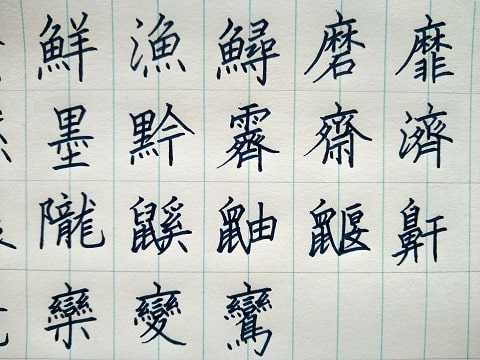 鮮漁鱘磨靡
墨黔霽齋濟
隴鼷鼬鼴鼾
欒變鸞